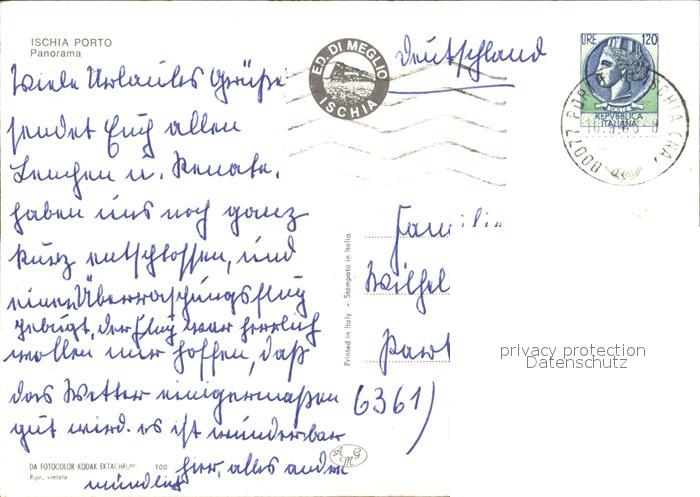 ISCHIA PORTO
Panorama
ED. DI MEGLIO
ISCHIA
Deutschland
LIRE 120
REPVBBLICA
ITALIANA
80077 PORTO D'ISCHIA (NA)
Viele Urlaubs Grüße
sendet Euch allen
Lenchen u. Renate.
haben uns noch ganz
kurz entschlossen, und
einen Überraschungsflug
gebucht, der Flug war herrlich
wollen nur hoffen, daß
das Wetter einigermaßen
gut wird. es ist wunderbar
hier, alles andere
mündlich
Printed in Italy - Stampato in Italia
Familie
Wilhel
(6361)
privacy protection
Datenschutz
DA FOTOCOLOR KODAK EKTACHROM 100
Ripr. vietata